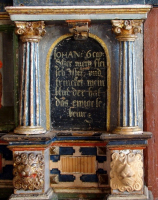 IOHAN: 6 cap:
Wer mein flei
sch isset, und
trincket mein
blut der hat
das ewige le
benn